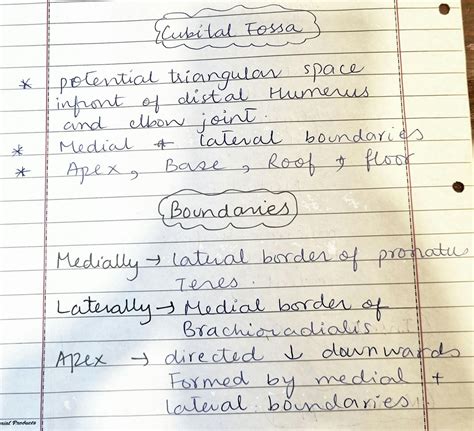 Cubital Fossa
* potential triangular space
infront of distal Humerus
and elbow joint.
* Medial + lateral boundaries
* Apex, Base, Roof + floor
Boundaries
Medially → lateral border of pronatus
Teres.
Laterally → Medial border of
Brachioradialis.
Apex → directed ↓ downwards
Formed by medial +
lateral boundaries.
nial Products